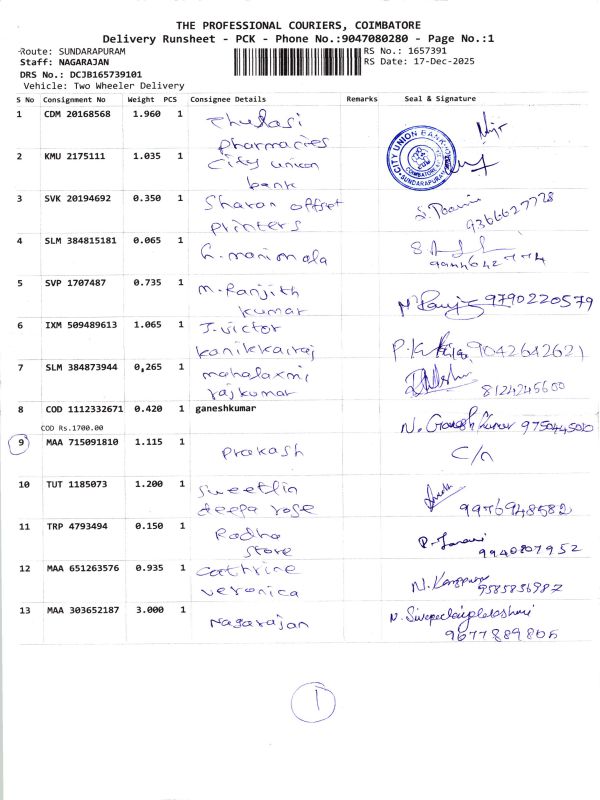 THE PROFESSIONAL COURIERS, COIMBATORE
Delivery Runsheet - PCK - Phone No.:9047080280 - Page No.:1
Route: SUNDARAPURAM RS No.: 1657391
Staff: NAGARAJAN RS Date: 17-Dec-2025
DRS No.: DCJB165739101
Vehicle: Two Wheeler Delivery
S No Consignment No Weight PCS Consignee Details Remarks Seal & Signature
1 CDM 20168568 1.960 1 Thulasi
pharmacies
CITY UNION BANK
COIMBATORE
SUNDARAPURAM
2 KMU 2175111 1.035 1 City union
bank
3 SVK 20194692 0.350 1 Sharon offset
printers 9366627728
4 SLM 384815181 0.065 1 
5 SVP 1707487 0.735 1 M. Ranjith
kumar 9790220579
6 IXM 509489613 1.065 1 J. victor
kanikkairaj 9042642621
7 SLM 384873944 0,265 1 mahalaxmi
rajkumar 8124245600
8 COD 1112332671 0.420 1 ganeshkumar
COD Rs.1700.00 N. Ganesh Kumar
9 MAA 715091810 1.115 1 Prakash C/n
10 TUT 1185073 1.200 1 Sweetlin
deepa rose 9976948582
11 TRP 4793494 0.150 1 Radha
store 9940807952
12 MAA 651263576 0.935 1 Cathrine
veronica 9585836987
13 MAA 303652187 3.000 1 Nagarajan
9677889805
1